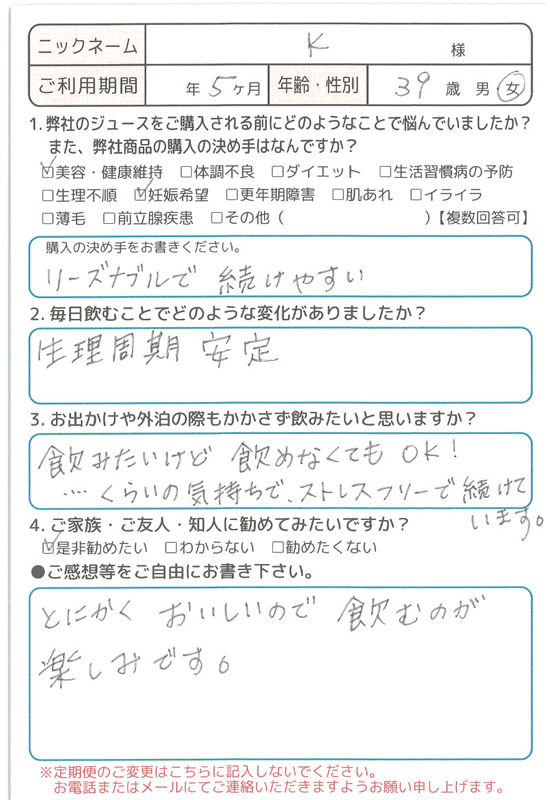 ニックネーム K 様
ご利用期間 年 5ヶ月 年齢・性別 39 歳 男・女
1. 弊社のジュースをご購入される前にどのようなことで悩んでいましたか?
また、弊社商品の購入の決め手はなんですか?
☑美容・健康維持 □体調不良 □ダイエット □生活習慣病の予防
□生理不順 ☑妊娠希望 □更年期障害 □肌あれ □イライラ
□薄毛 □前立腺疾患 □その他( )【複数回答可】
購入の決め手をお書きください。
リーズナブルで 続けやすい
2. 毎日飲むことでどのような変化がありましたか?
生理周期 安定
3. お出かけや外泊の際もかかさず飲みたいと思いますか?
飲みたいけど 飲めなくても OK!
‥‥くらいの気持ちで、ストレスフリーで続けて
います。
4. ご家族・ご友人・知人に勧めてみたいですか?
☑是非勧めたい □わからない □勧めたくない
●ご感想等をご自由にお書き下さい。
とにかく おいしいので 飲むのが
楽しみです。
※定期便のご変更はこちらに記入しないでください。
お電話またはメールにてご連絡いただきますようお願い申し上げます。